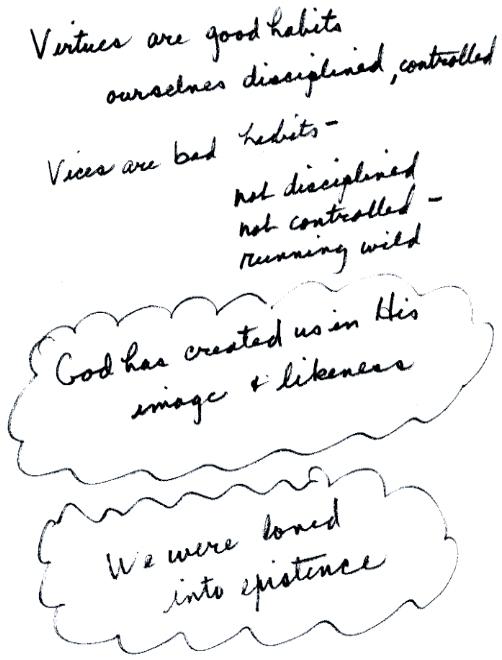 Virtues are good habits
ourselves disciplined, controlled
Vices are bad habits-
not disciplined
not controlled -
running wild
God has created us in His
image & likeness
We were loved
into existence